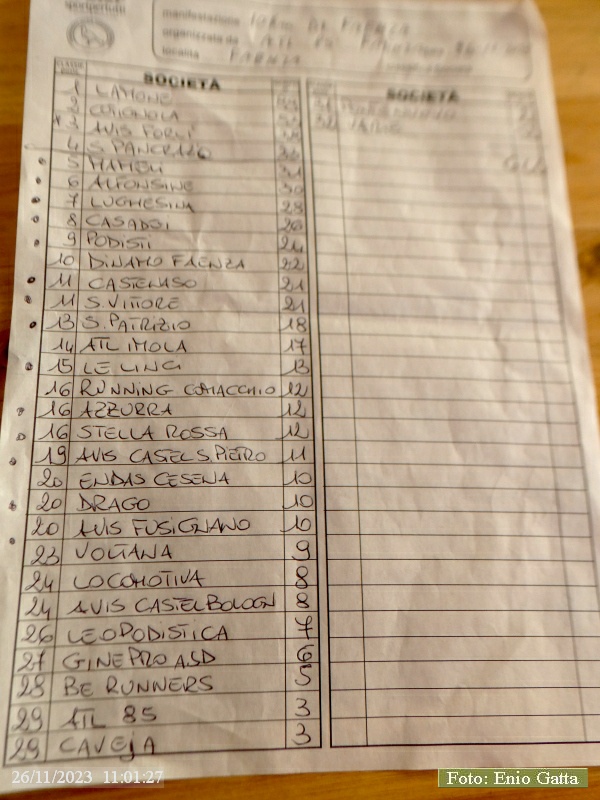 manifestazione 10KM DI FAENZA
organizzata da ATL. 85 FAENZA
località FAENZA
SOCIETÀ
1 LAMONE
2 COTIGNOLA
3 AVIS FORLÌ
4 S. PANCRAZIO
5 MAMELI 31
6 ALFONSINE 30
7 LUGHESINA 28
8 CASADEI 26
9 PODISTI 24
10 DINAMO FAENZA 22
11 CASTENASO 21
11 S. VITTORE 21
13 S. PATRIZIO 18
14 ATL IMOLA 17
15 LE LINCI 13
16 RUNNING COMACCHIO 12
16 AZZURRA 12
16 STELLA ROSSA 12
19 AVIS CASTEL S PIETRO 11
20 ENDAS CESENA 10
20 DRAGO 10
20 AVIS FUSIGNANO 10
23 VOLTANA 9
24 LOCOMOTIVA 8
24 AVIS CASTELBOLOGN 8
26 LEOPODISTICA 7
27 GINEPRO ASD 6
28 BE RUNNERS 5
29 ATL 85 3
29 CAVEJA 3
SOCIETÀ
31
32
26/11/2023 11:01:27
Foto: Enio Gatta